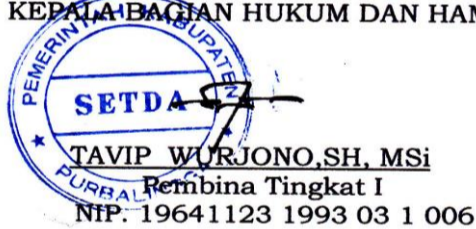 KEPALA BAGIAN HUKUM DAN HAM
PEMERINTAH KABUPATEN
SETDA
PURBALINGGA
TAVIP WURJONO,SH, MSi
Pembina Tingkat I
NIP. 19641123 1993 03 1 006